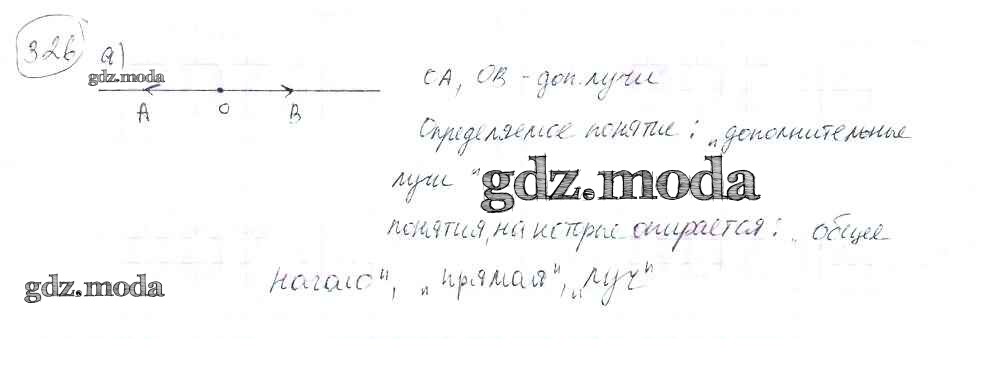 326 а)
gdz.moda
А О В
ОА, ОВ - доп. лучи
Определяемое понятие: „дополнительные
лучи"
gdz.moda
понятия, на которые опирается: „общее
gdz.moda
начало", „прямая", „луч"